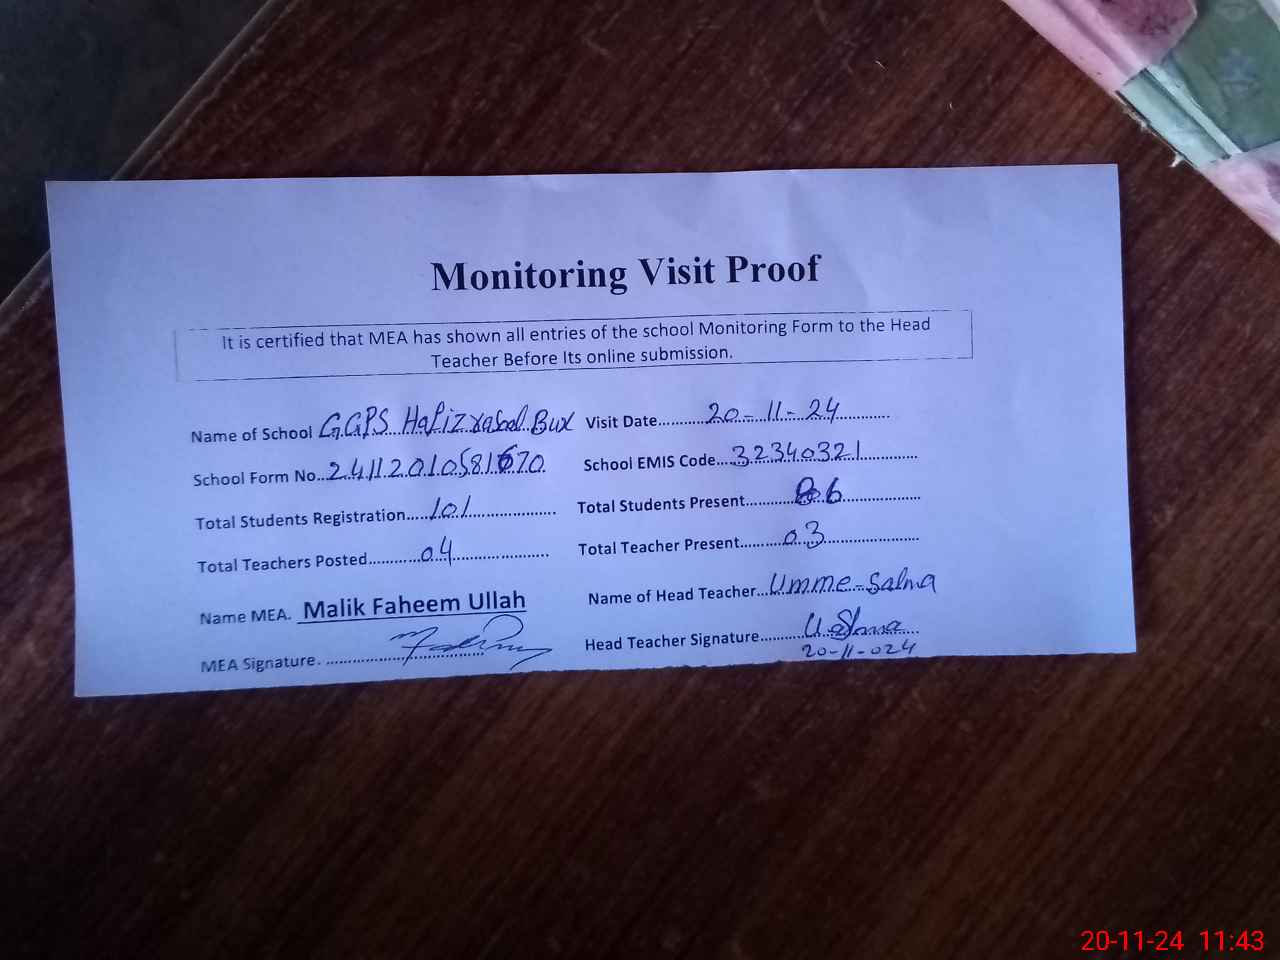 Monitoring Visit Proof
It is certified that MEA has shown all entries of the school Monitoring Form to the Head
Teacher Before Its online submission.
Name of School GGPS Hafiz rasool Bux Visit Date 20-11-24
School Form No. 24112010581670 School EMIS Code 32340321
Total Students Registration 101 Total Students Present 86
Total Teachers Posted 04 Total Teacher Present 03
Name MEA. Malik Faheem Ullah Name of Head Teacher Umme-Salma
MEA Signature. Head Teacher Signature U.Salma
20-11-024
20-11-24 11:43